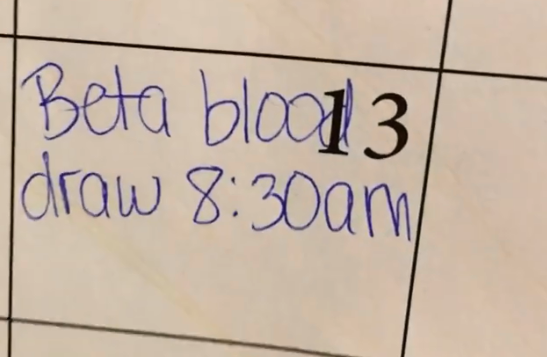 Beta blood 13
draw 8:30am